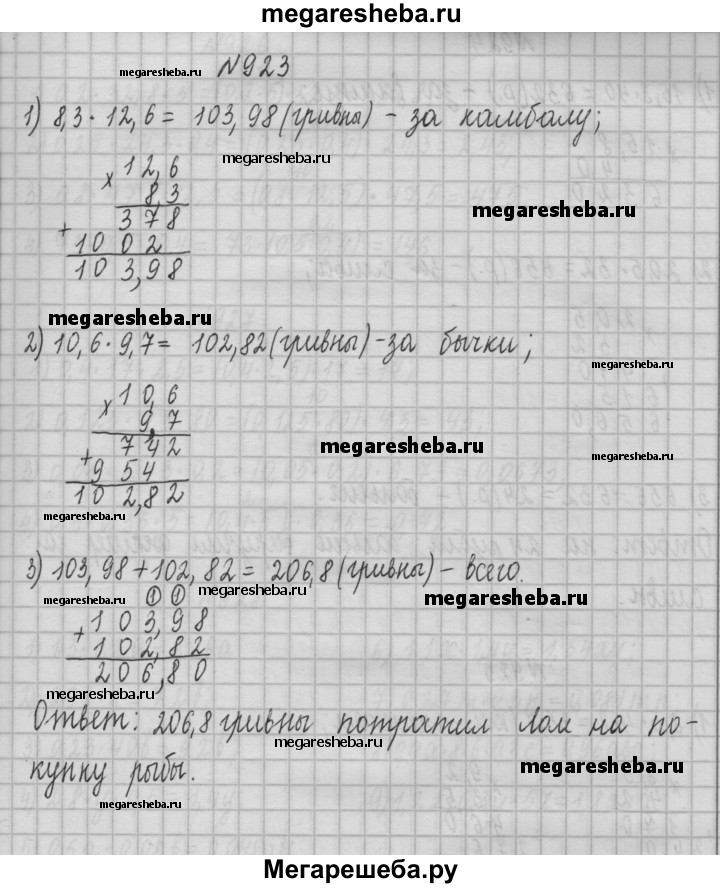 megaresheba.ru
megaresheba.ru №923
1) 8,3 · 12,6 = 103,98 (гривны) - за камбалу;
megaresheba.ru
× 12,6
8,3
megaresheba.ru
378
+ 1002
103,98
megaresheba.ru
2) 10,6 · 9,7 = 102,82 (гривны) - за бычки;
megaresheba.ru
× 10,6
9,7
742
megaresheba.ru
megaresheba.ru
+ 954
102,82
megaresheba.ru
3) 103,98 + 102,82 = 206,8 (гривны) - всего.
megaresheba.ru
megaresheba.ru
1 1
+ 103,98
102,82
206,80
megaresheba.ru
Ответ: 206,8 гривны потратил Лом на по-
megaresheba.ru
купку рыбы.
megaresheba.ru
megaresheba.ru
Мегарешеба.ру